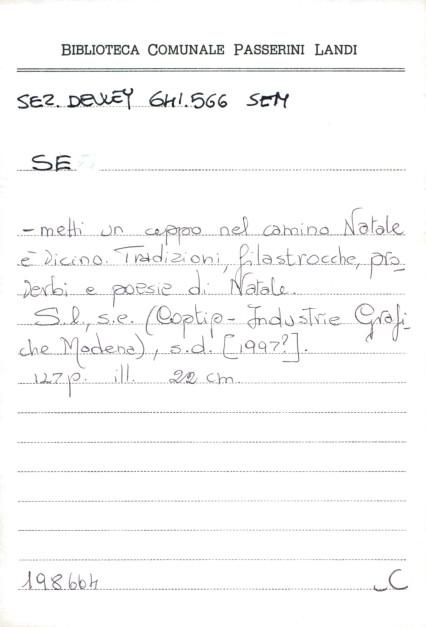 BIBLIOTECA COMUNALE PASSERINI LANDI
SEZ. DEWEY 641.566 SEM
SE
- metti un ceppo nel camino Natale
è vicino. Tradizioni, filastrocche, pro_
verbi e poesie di Natale.
S.l., s.e. (Coptip - Industrie Grafi-
che Modena), s.d. [1997?].
127 p. ill. 22 cm.
198664 _C